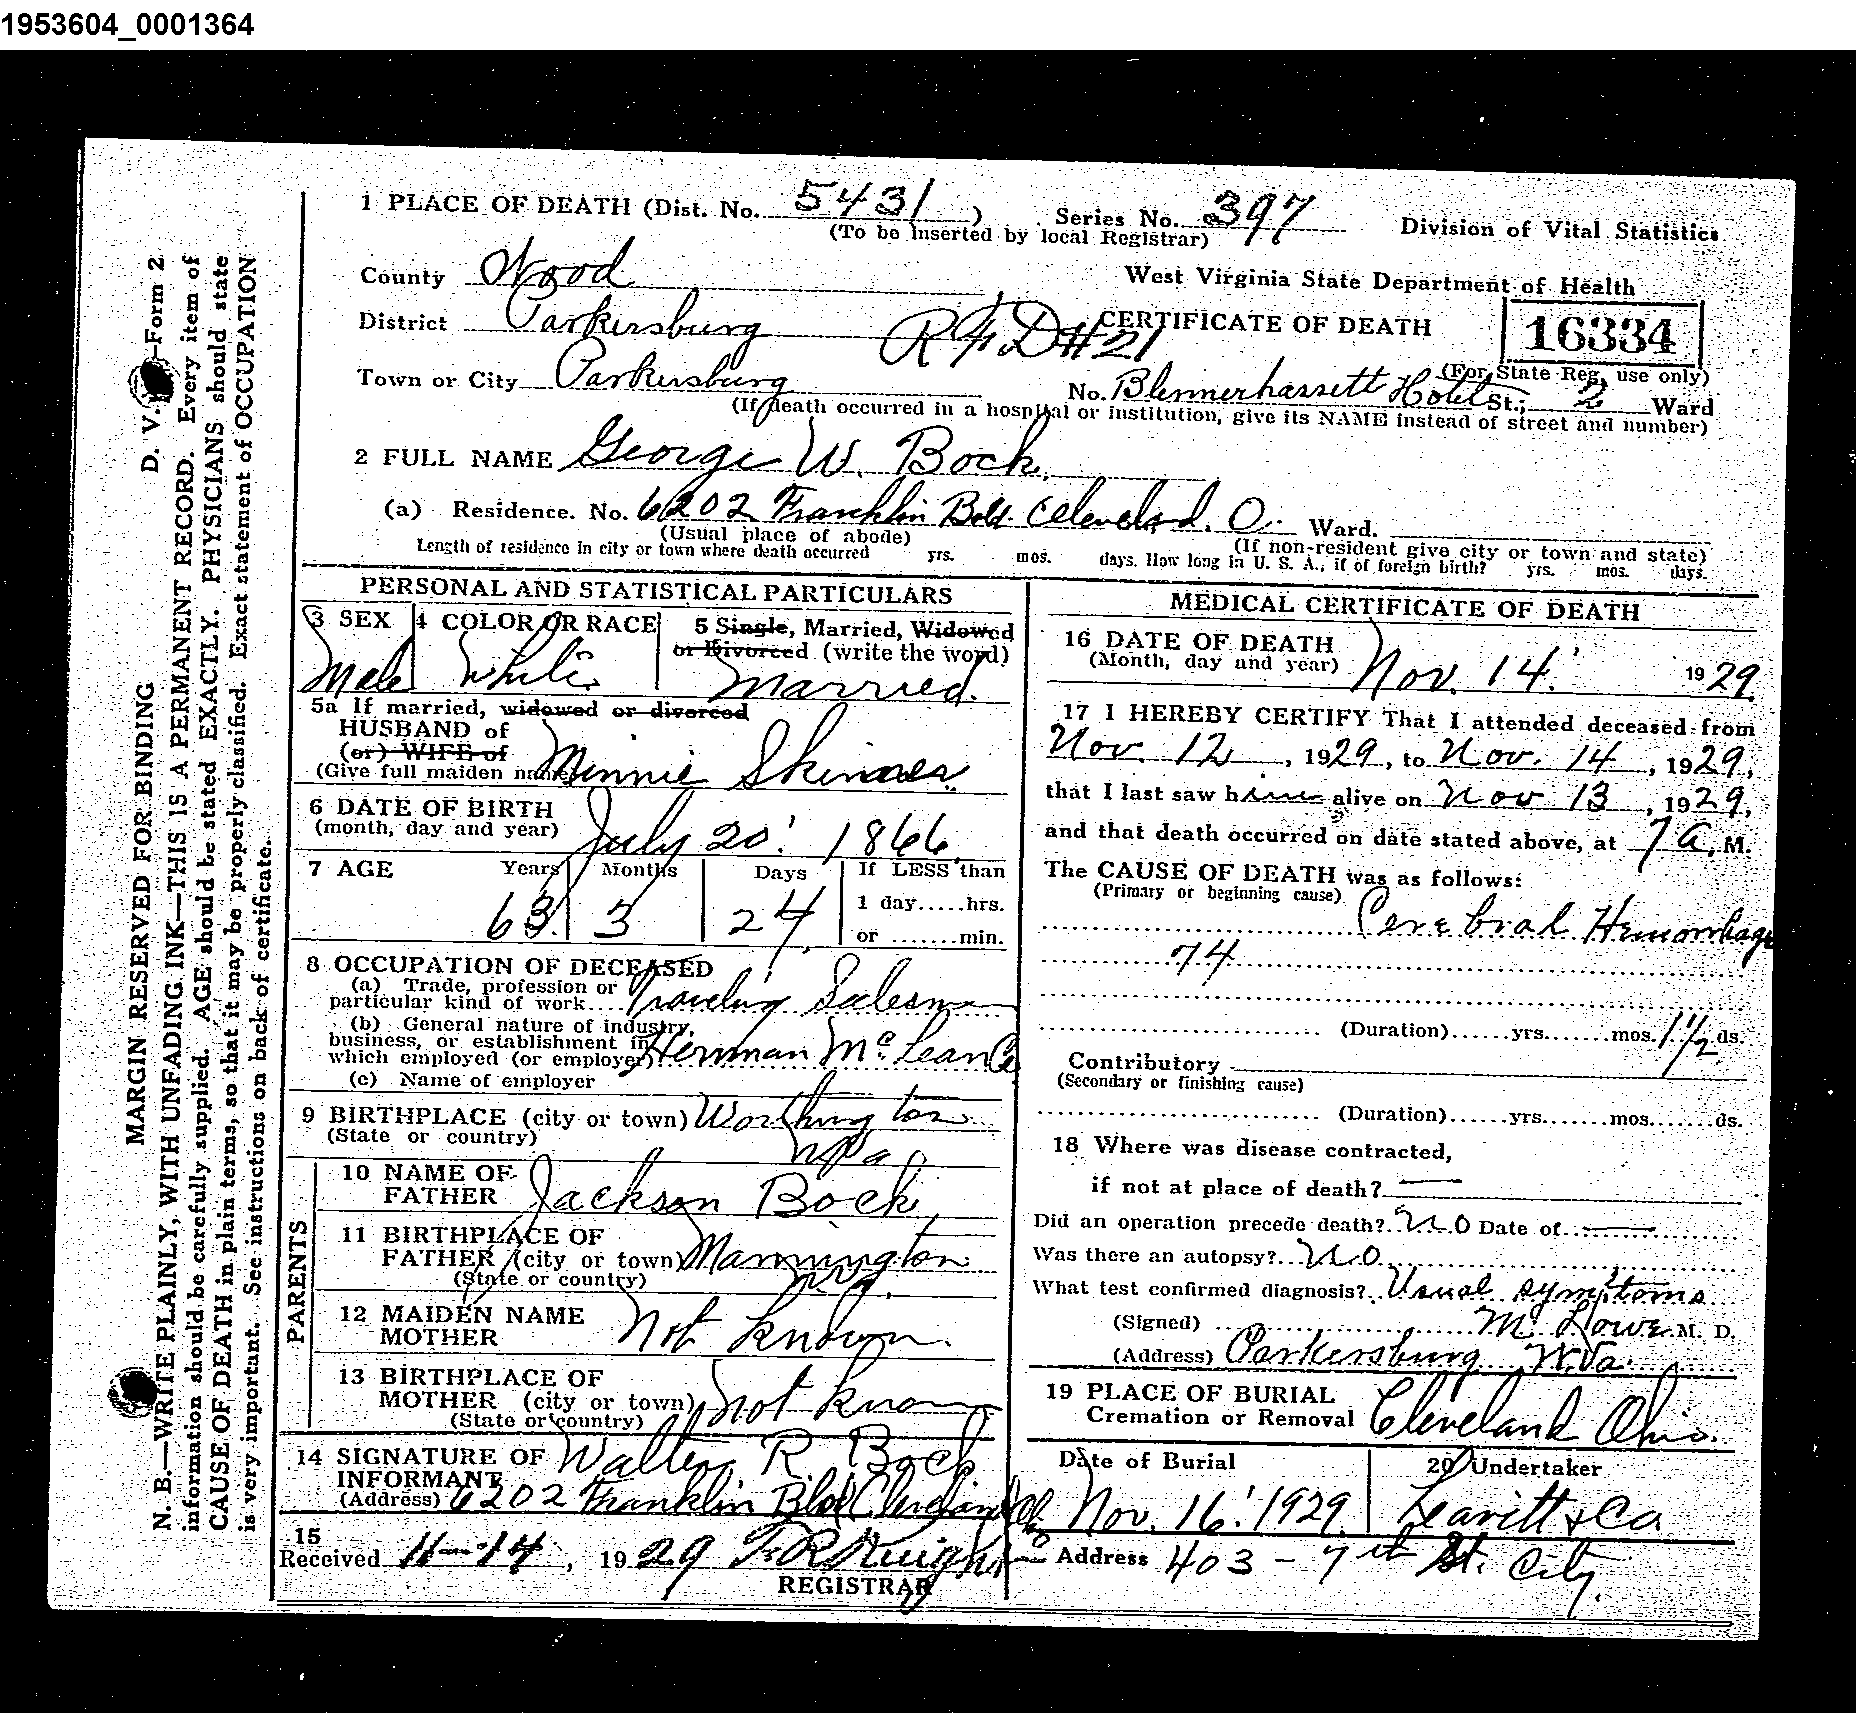 1953604_0001364
1 PLACE OF DEATH (Dist. No. 5431 ) Series No. 397 Division of Vital Statistics
(To be inserted by local Registrar)
County Wood West Virginia State Department of Health
District Parkersburg R F D # 21 CERTIFICATE OF DEATH 16334
(For State Reg. use only)
Town or City Parkersburg No. Blennerhassett Hotel St.; 2 Ward
(If death occurred in a hospital or institution, give its NAME instead of street and number)
2 FULL NAME George W. Bock.
(a) Residence. No. 6202 Franklin Bvld. Cleveland. O. Ward.
(Usual place of abode) (If non-resident give city or town and state)
Length of residence in city or town where death occurred yrs. mos. days. How long in U. S. A., if of foreign birth? yrs. mos. days.
PERSONAL AND STATISTICAL PARTICULARS
3 SEX 4 COLOR OR RACE 5 Single, Married, Widowed
or Divorced (write the word)
Male White Married.
5a If married, widowed or divorced
HUSBAND of
(or) WIFE of Minnie Skinner
(Give full maiden name)
6 DATE OF BIRTH
(month, day and year) July 20' 1866.
7 AGE Years Months Days If LESS than
1 day.....hrs.
63. 3 24. or .......min.
8 OCCUPATION OF DECEASED
(a) Trade, profession or
particular kind of work Traveling Salesman
(b) General nature of industry,
business, or establishment in
which employed (or employer) Herrman Mc Lean Co
(c) Name of employer
9 BIRTHPLACE (city or town) Worthington
(State or country) W Va
PARENTS
10 NAME OF
FATHER Jackson Bock
11 BIRTHPLACE OF
FATHER (city or town) Mannington
(State or country) W Va.
12 MAIDEN NAME
MOTHER Not Known.
13 BIRTHPLACE OF
MOTHER (city or town) Not Known
(State or country)
14 SIGNATURE OF Walter R Bock
INFORMANT
(Address) 6202 Franklin Blvd Cleveland Oh
15
Received 11-14, 1929 F R Knight
REGISTRAR
MEDICAL CERTIFICATE OF DEATH
16 DATE OF DEATH
(Month, day and year) Nov. 14. 1929
17 I HEREBY CERTIFY That I attended deceased from
Nov. 12, 1929, to Nov. 14, 1929,
that I last saw him alive on Nov 13, 1929,
and that death occurred on date stated above, at 7 a. M.
The CAUSE OF DEATH was as follows:
(Primary or beginning cause)
Cerebral Hemorrhage
74
(Duration)......yrs.......mos. 1 1/2 ds.
Contributory
(Secondary or finishing cause)
(Duration)......yrs.......mos.......ds.
18 Where was disease contracted,
if not at place of death? —
Did an operation precede death? No Date of —
Was there an autopsy? No
What test confirmed diagnosis? Usual symptoms
(Signed) M Lowe M. D.
(Address) Parkersburg W. Va.
19 PLACE OF BURIAL
Cremation or Removal Cleveland Ohio.
Date of Burial 20 Undertaker
Nov. 16' 1929. Leavitt & Co
Address 403 - 7th St. City.
D. V. —Form 2
MARGIN RESERVED FOR BINDING
N. B.—WRITE PLAINLY, WITH UNFADING INK—THIS IS A PERMANENT RECORD. Every item of
information should be carefully supplied. AGE should be stated EXACTLY. PHYSICIANS should state
CAUSE OF DEATH in plain terms, so that it may be properly classified. Exact statement of OCCUPATION
is very important. See instructions on back of certificate.